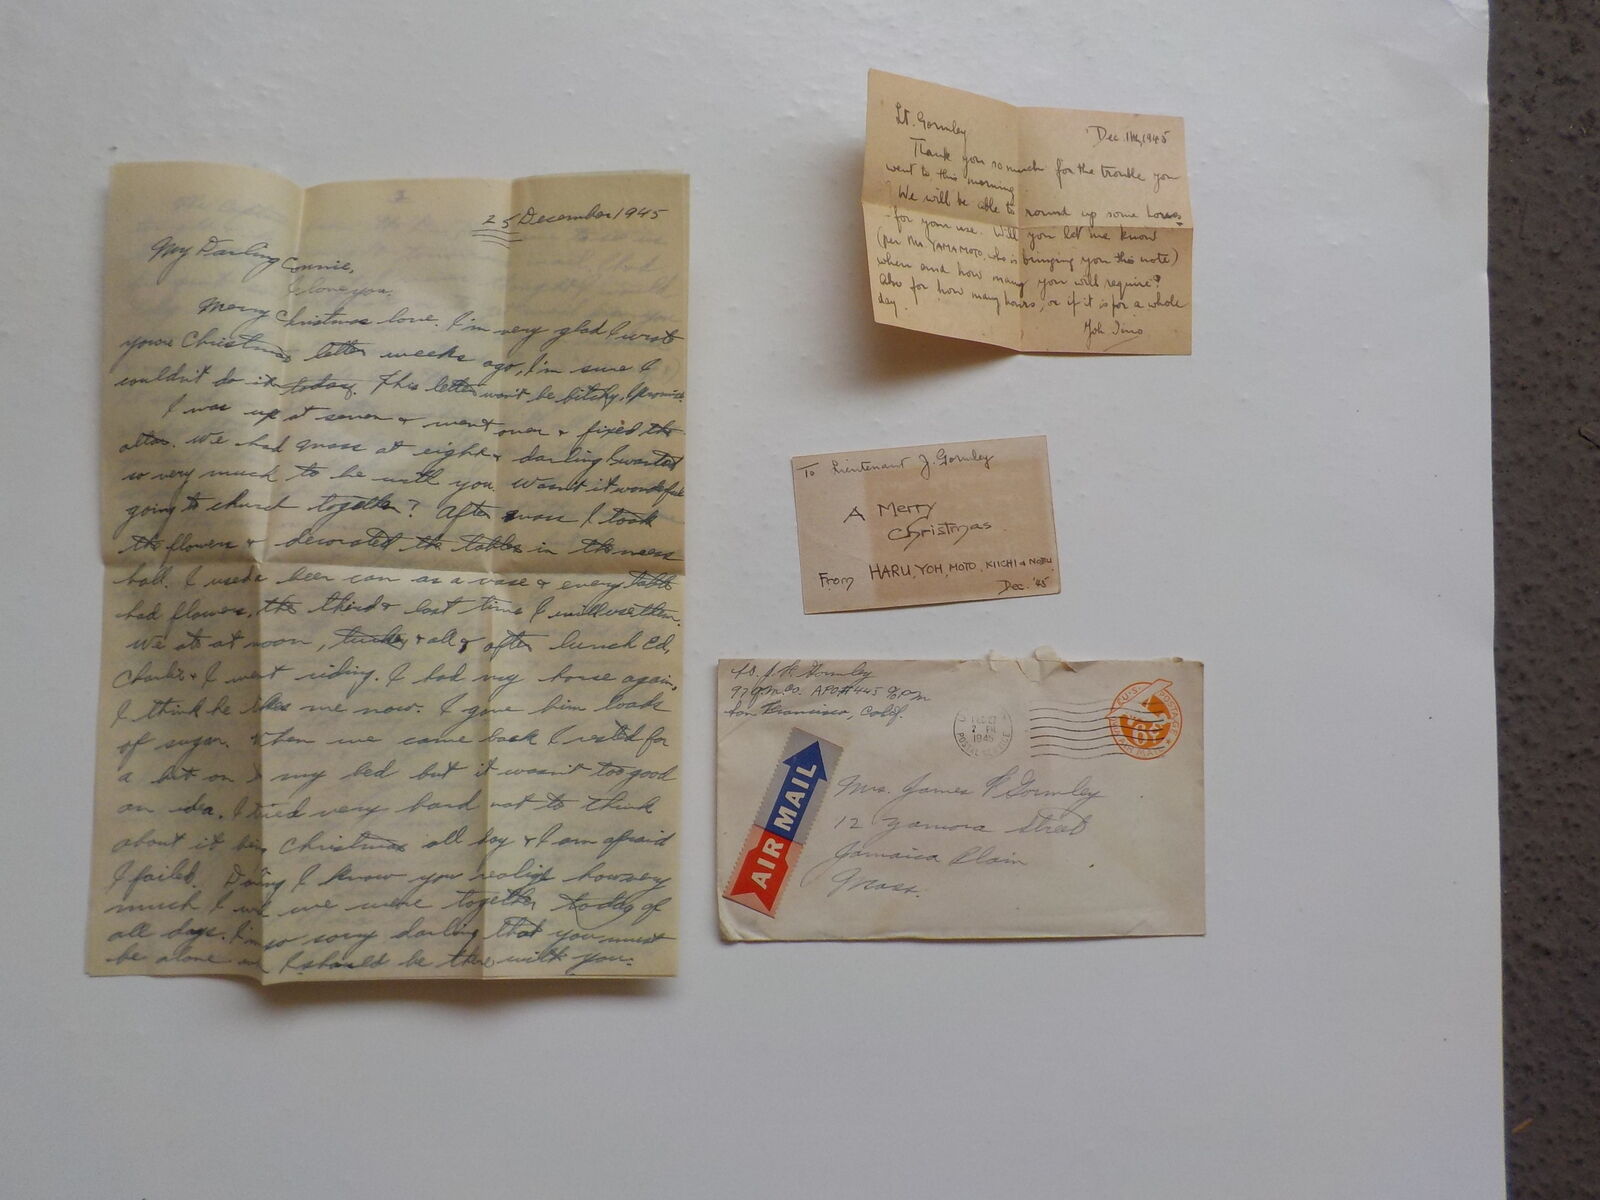 25 December 1945
My Darling Connie,
I love you.
Merry Christmas love. I'm very glad I wrote
youre Christmas letter weeks ago, I'm sure I
couldn't do it today. This letter won't be bitchy, I promise.
I was up at seven & went over & fixed the
altar. We had mass at eight & darling I wanted
so very much to be with you. Wasn't it wonderful
going to church together? After mass I took
the flowers & decorated the tables in the mess
hall. I used a beer can as a vase & every table
had flowers. the third & last time I will use them.
We ate at noon, turkey & all & after lunch Ed,
Charlie & I went riding. I had my horse again,
I think he likes me now. I gave him loads
of sugar. When we came back I rested for
a bit on my bed but it wasn't too good
an idea. I tried very hard not to think
about it being Christmas all day & I am afraid
I failed. I know you realize how very
much I we were together today of
all days. I'm so sorry darling that you must
be alone I should be there with you.
Lt. Gormley
Dec. 11th, 1945
Thank you so much for the trouble you
went to this morning.
We will be able to round up some horses
for your use. Will you let me know
(per Mr. YAMAMOTO, who is bringing you this note)
when and how many you will require?
Also for how many hours, or if it is for a whole
day.
Yoh
To Lieutenant J. Gormley
A Merry
Christmas
From HARU, YOH, MOTO, KIICHI & NOBU
Dec. '45
Gormley
97 Q.M. Co. APO# 445 % P.M
San Francisco, Calif.
2 PM
1945
POSTAL SERVICE
U.S. POSTAGE
AIR MAIL
Mrs. James Gormley
12 Zamora Street
Jamaica Plain
Mass.